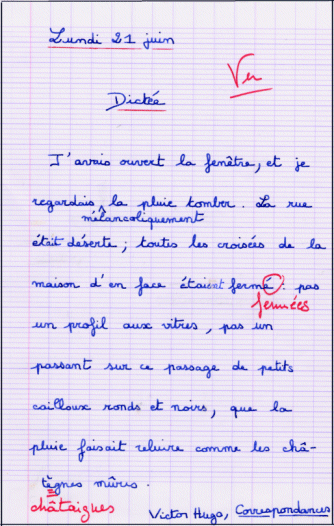 Lundi 21 juin
Vu
Dictée
J'avais ouvert la fenêtre, et je
regardais la pluie tomber. La rue
mélancoliquement
était déserte ; toutes les croisées de la
maison d'en face étaient fermé : pas
fermées
un profil aux vitres, pas un
passant sur ce passage de petits
cailloux ronds et noirs, que la
pluie faisait reluire comme les châ-
tègnes mûres.
châtaigues
Victor Hugo, Correspondances